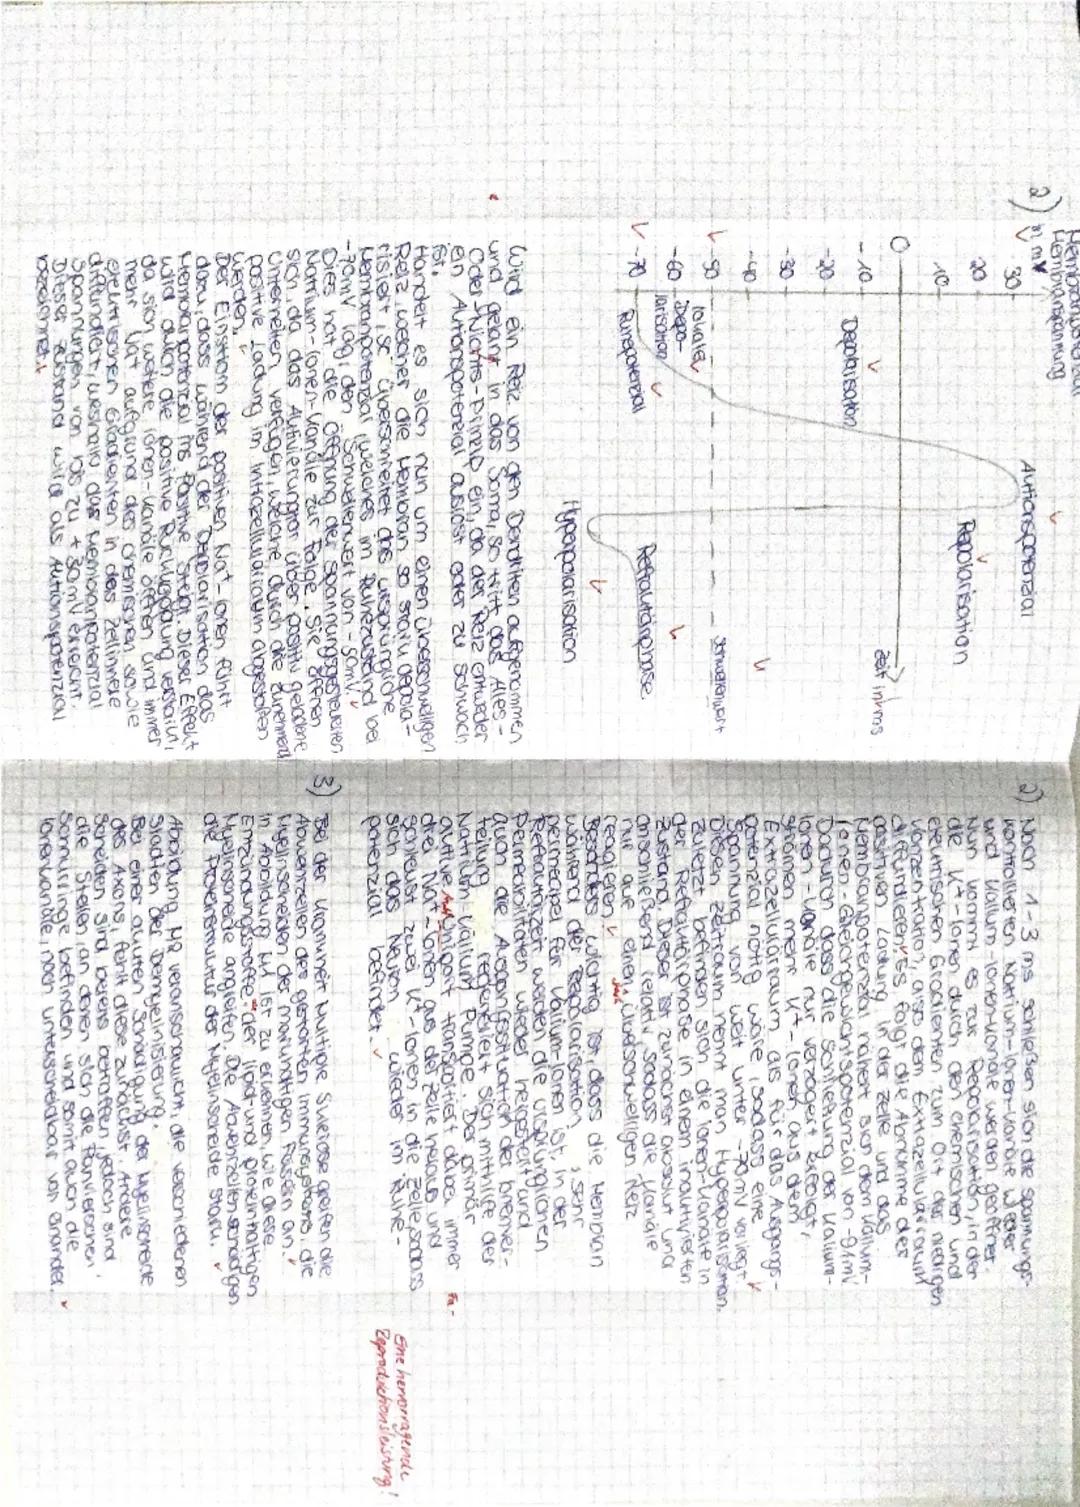 2)
Membranspannung
in mV
30
20
10
0
-10
-20
-30
-40
-50
-60
-70
Aktionspotenzial
Depolarisation
Repolarisation
Zeit in ms
Schwellenwert
lokale
Depo-
larisation
Ruhepotenzial
Refraktärphase
Hyperpolarisation
Wird ein Reiz von den Dendriten aufgenommen
und gelangt in das Soma, so tritt das Alles-
Oder-Nichts-Prinzip ein, da der Reiz entweder
ein Aktionspotenzial auslöst oder zu schwach
ist.
Handelt es sich nun um einen überschwelligen
Reiz, welcher die Membran so stark depola-
risiert, so überschreitet das ursprüngliche
Membranpotenzial, welches im Ruhezustand bei
-70mV lag, den Schwellenwert von -50mV.
Dies hat die Öffnung der spannungsgesteuerten
Natrium-Ionen-Kanäle zur Folge. Sie öffnen
sich, da das Aktivierungstor über positiv geladene
Unterheiten verfügen, welche durch die zunehmend
positive Ladung im Intrazellulärraum abgestoßen
werden.
Der Einstrom der positiven Na+-Ionen führt
dazu, dass während der Depolarisation das
Membranpotenzial ins Positive steigt. Dieser Effekt
wird durch die positive Rückkopplung verstärkt,
da sich weitere Ionen-Kanäle öffnen und immer
mehr Na+ aufgrund des chemischen sowie
elektrischen Gradienten in das Zellinnere
diffundiert, weshalb das Membranpotenzial
Spannungen von bis zu +30mV erreicht.
Dieser Zustand wird als Aktionspotenzial
bezeichnet.
2)
Nach 1-3 ms schließen sich die spannungs-
kontrollierten Natrium-Ionen-Kanäle wieder
und Kalium-Ionen-Kanäle werden geöffnet.
Nun kommt es zur Repolarisation, in der
die K+-Ionen durch den chemischen und
elektrischen Gradienten zum Ort der niedrigen
Konzentration, also dem Extrazellulärraum
diffundieren. Es folgt die Abnahme der
positiven Ladung in der Zelle und das
Membranpotenzial nähert sich dem Kalium-
Ionen-Gleichgewichtspotenzial von -91mV.
Dadurch, dass die Schließung der Kalium-
Ionen-Kanäle nur verzögert erfolgt,
strömen mehr K+-Ionen aus dem
Extrazellulärraum als für das Ausgangs-
potenzial nötig wäre, sodass eine
Spannung von weit unter -70mV vorliegt.
Diesen Zeitraum nennt man Hyperpolarisation.
Zuletzt befinden sich die Ionen-Kanäle in
der Refraktärphase in einem inaktivierten
Zustand. Dieser ist zunächst absolut und
anschließend relativ, sodass die Kanäle
nur auf einen stark überschwelligen Reiz
reagieren.
Besonders wichtig ist, dass die Membran
während der Repolarisation sehr
permeabel für Kalium-Ionen ist. In der
Refraktärzeit werden die ursprünglichen
Permeabilitäten wieder hergestellt und
auch die Ausgangssituation der Ionenver-
teilung reguliert sich mithilfe der
Natrium-Kalium Pumpe. Der primär
aktive Antiport transportiert dabei immer
drei Na+-Ionen aus der Zelle heraus und
schleust zwei K+-Ionen in die Zelle, sodass
sich das Neuron wieder im Ruhe-
potenzial befindet.
Fa-
Eine hervorragende
Reproduktionsleistung!
3)
Bei der Krankheit Multiple Sklerose greifen die
Abwehrzellen des gestörten Immunsystems, die
Myelinscheiden der markhaltigen Fasern an.
In Abbildung M1 ist zu erkennen, wie diese
Entzündungsstoffe der lipid- und proteinhaltigen
Myelinscheide angreifen. Die Abwehrzellen schädigen
die Proteinstruktur der Myelinscheide stark.
Abbildung M2 veranschaulicht, die verschiedenen
Stadien der Demyelinisierung.
Bei einer akuten Schädigung der Myelinscheide
des Axons, fehlt diese zunächst. Andere
Scheiden sind bereits betroffen, jedoch sind
die Stellen, an denen sich die Ranvierschen
Schnürringe befinden und somit auch die
Ionenkanäle, noch unterscheidbar von einander.